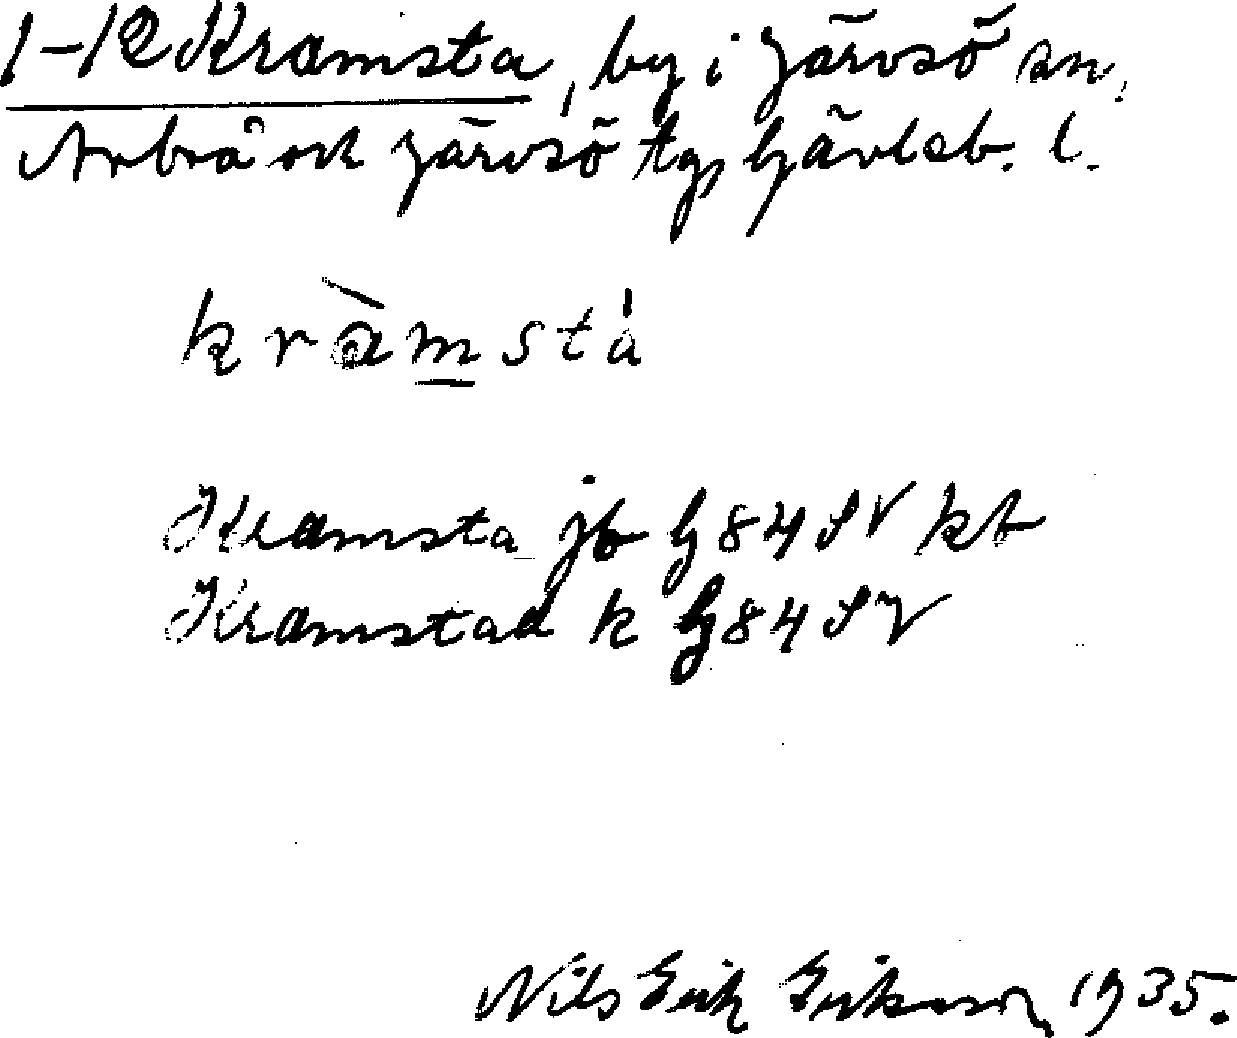 1-12 Kramsta, by i Järvsö sn,
Arbrå och Järvsö tg, Gävleb. l.
kràmstá
Kramsta jb G84SV kb
Kramstad k G84SV
Nils Erik Eriksson 1935.